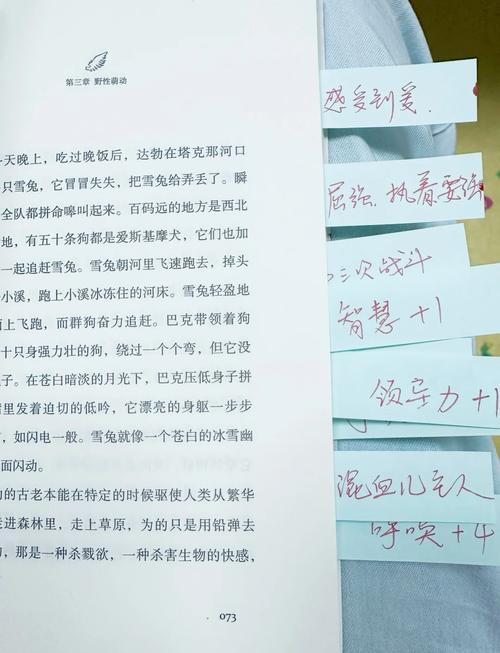 第三章 野性萌动
天晚上，吃过晚饭后，达勃在塔克那河口
只雪兔，它冒冒失失，把雪兔给弄丢了。瞬
全队都拼命嗥叫起来。百码远的地方是西北
地，有五十条狗都是爱斯基摩犬，它们也加
一起追赶雪兔。雪兔朝河里飞速跑去，掉头
小溪，跑上小溪冰冻住的河床。雪兔轻盈地
上飞跑，而群狗奋力追赶。巴克带领着狗
十只身强力壮的狗，绕过一个个弯，但它没
子。在苍白暗淡的月光下，巴克压低身子拼
里发着迫切的低吟，它漂亮的身躯一步步
，如闪电一般。雪兔就像一个苍白的冰雪幽
面闪动。
的古老本能在特定的时候驱使人类从繁华
走进森林里，走上草原，为的只是用铅弹去
，那是一种杀戮欲，一种杀害生物的快感，
073
感受到爱.
屈强、执着要强
三次战斗
智慧+1
领导力+1
混血儿主人
呼唤+4